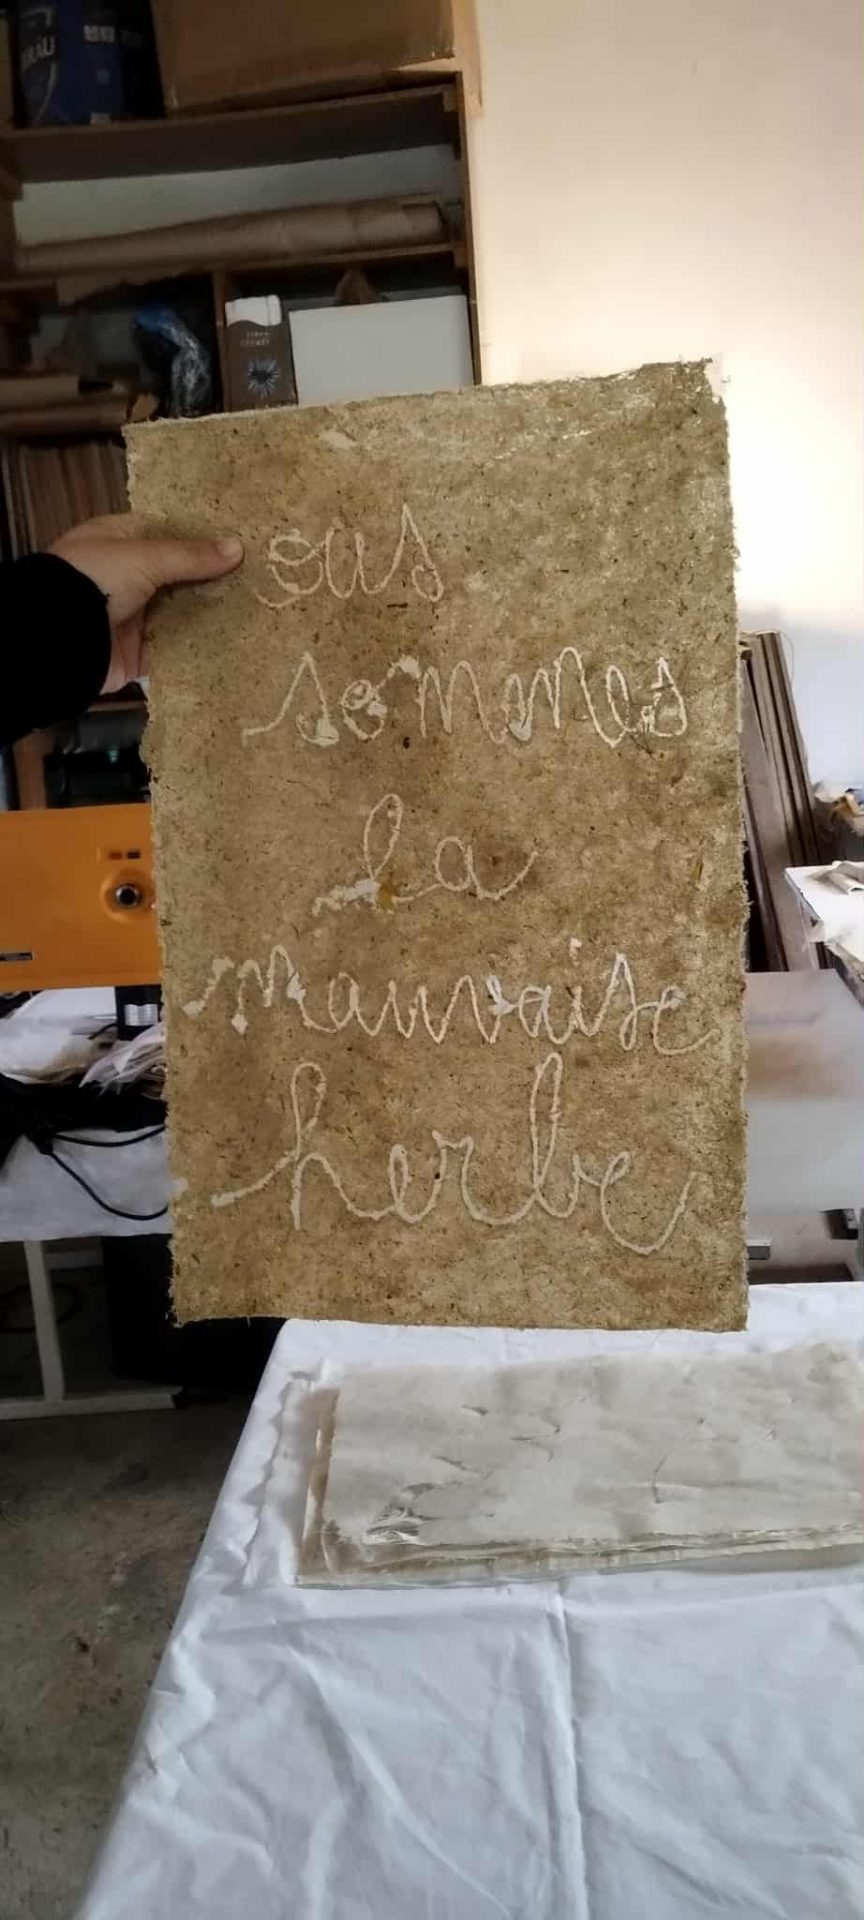 ous
sommes
la
mauvaise
herbe